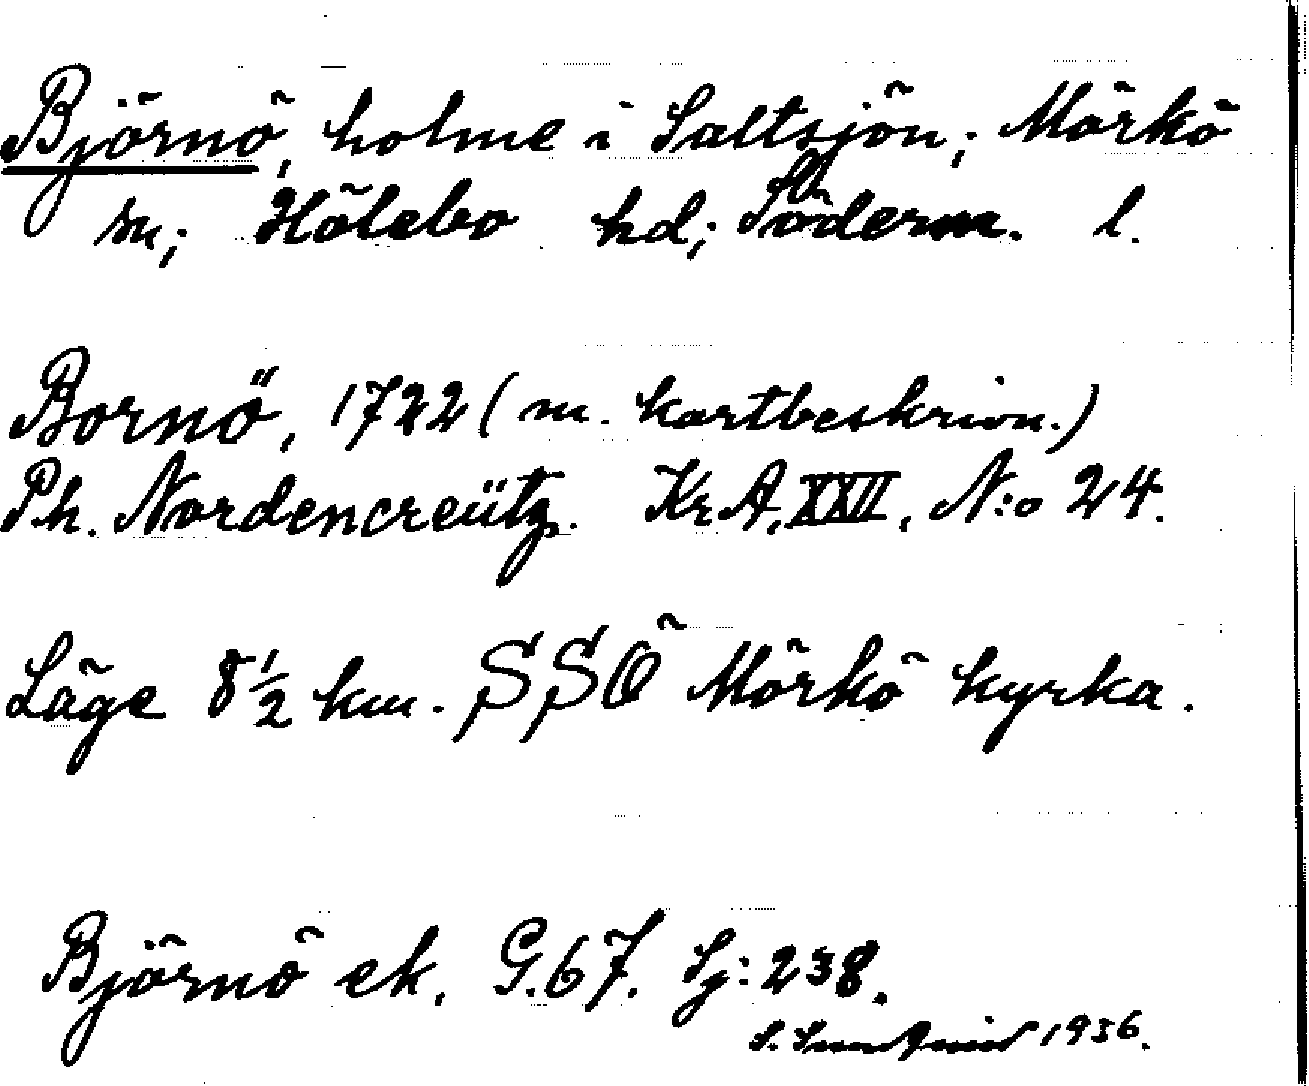 Björnö, holme i Saltsjön; Mörkö
sn; Hölebo hd; Söderm. l.
Bornö, 1722 (m. kartbeskrivn.)
Ph. Nordencreütz. KrA, XXII, N:o 24.
Läge 8 1/2 km. SSÖ Mörkö kyrka.
Björnö ek. G.67. Sj: 238.
S. 1936.